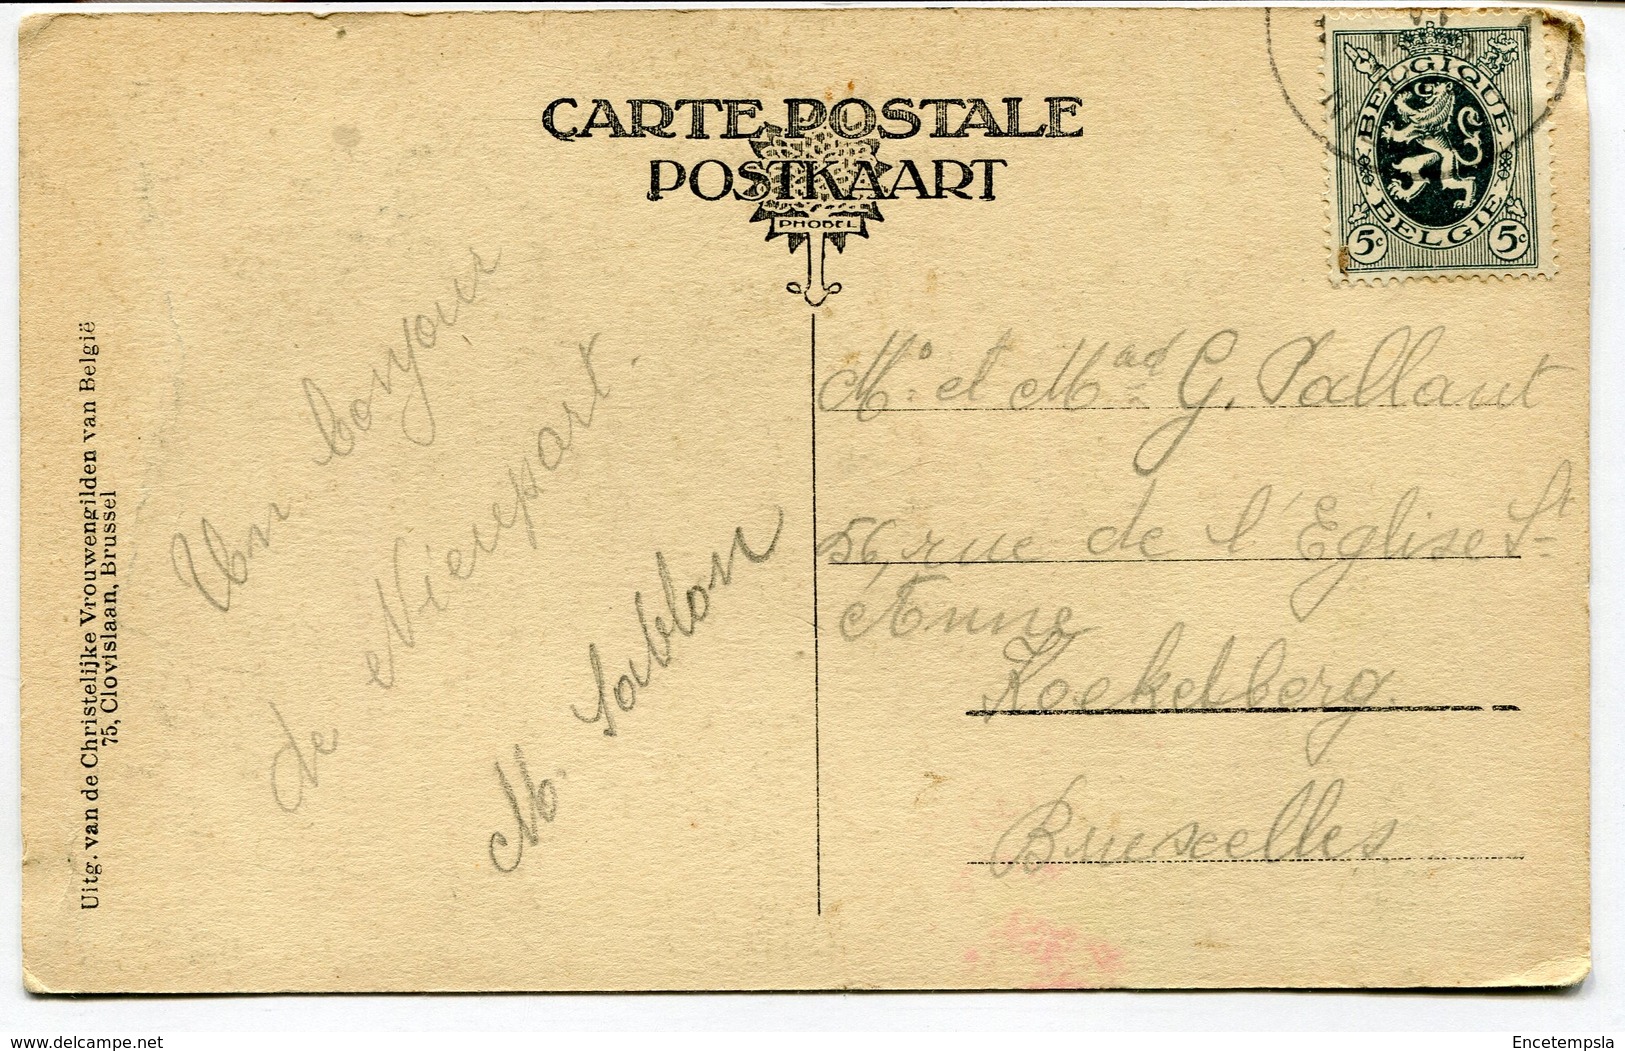 CARTE POSTALE
POSTKAART
PHOBEL
BELGIQUE
BELGIE
5c 5c
Uitg. van de Christelijke Vrouwengilden van België
75, Clovislaan, Brussel
Un bonjour
de Nieuport.
M. Sablon
Mr et Mad G. Vallaut
56, rue de l'Eglise St
Anne
Koekelberg
Bruxelles
www.delcampe.net
Encetempsla